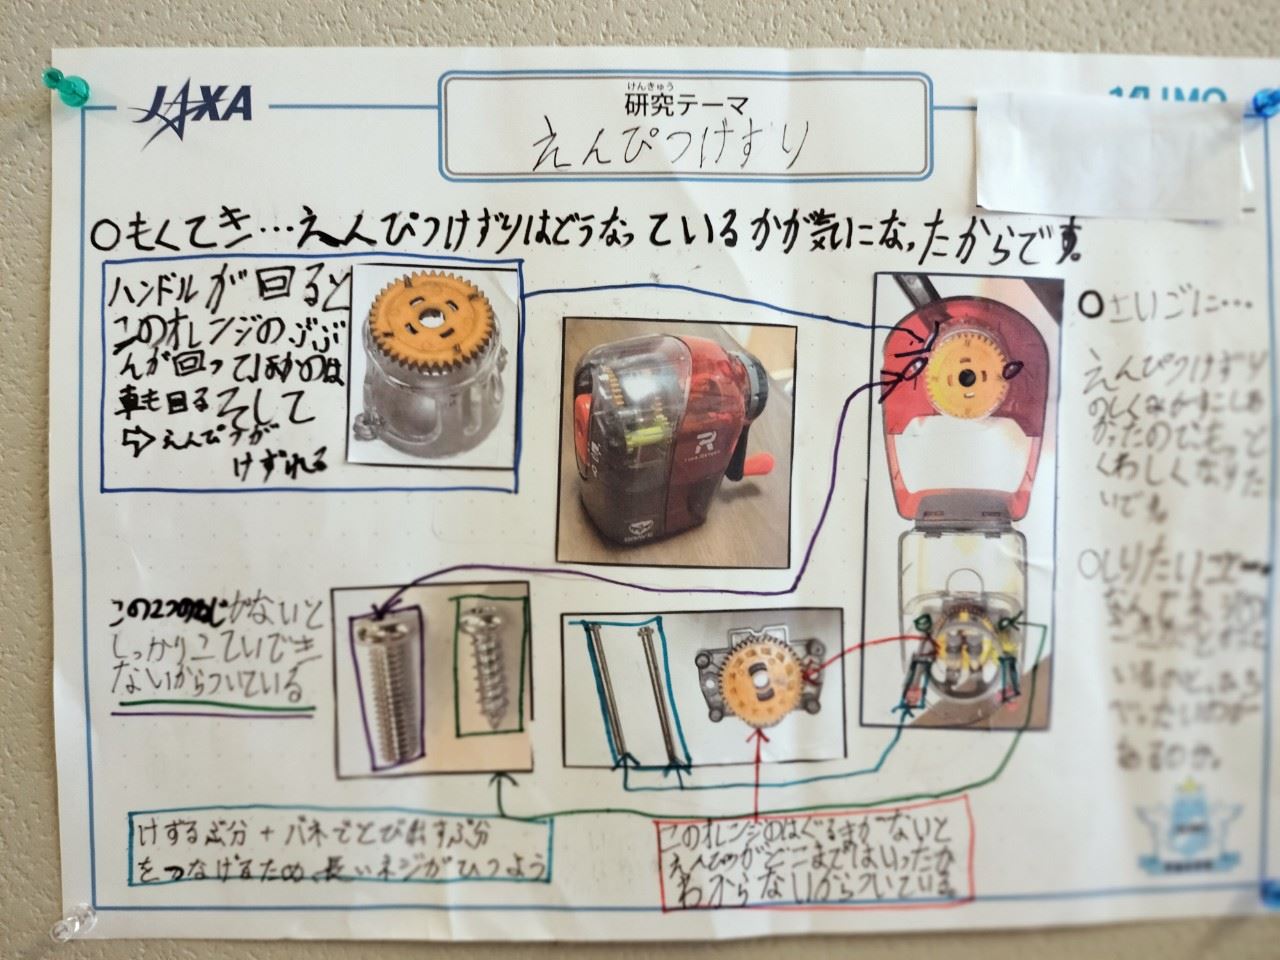 JAXA
けんきゅう
研究テーマ
えんぴつけずり
○もくてき…えんぴつけずりはどうなっているかが気になったからです。
ハンドルが回ると
このオレンジのぶぶ
んが回ってほかのは
車も回る そして
⇨えんぴつが
けずれる
R
この2つのねじがないと
しっかりこていでき
ないからついている
けずるぶ分+バネでとび出すぶ分
をつなげるため、長いネジがひつよう
このオレンジのはぐるまがないと
えんぴつがどこまではいったか
わからないからついている。
○さいごに…
えんぴつけずり
のしくみがすこしわ
かったのでもっと
くわしくなりた
いです。
○しりたいこと…
いるのと、
あるのか。